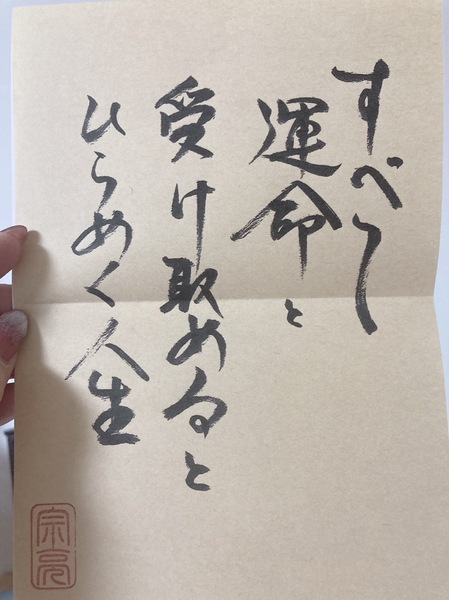 すべて
運命と
受け取めると
ひらめく人生
宗亮